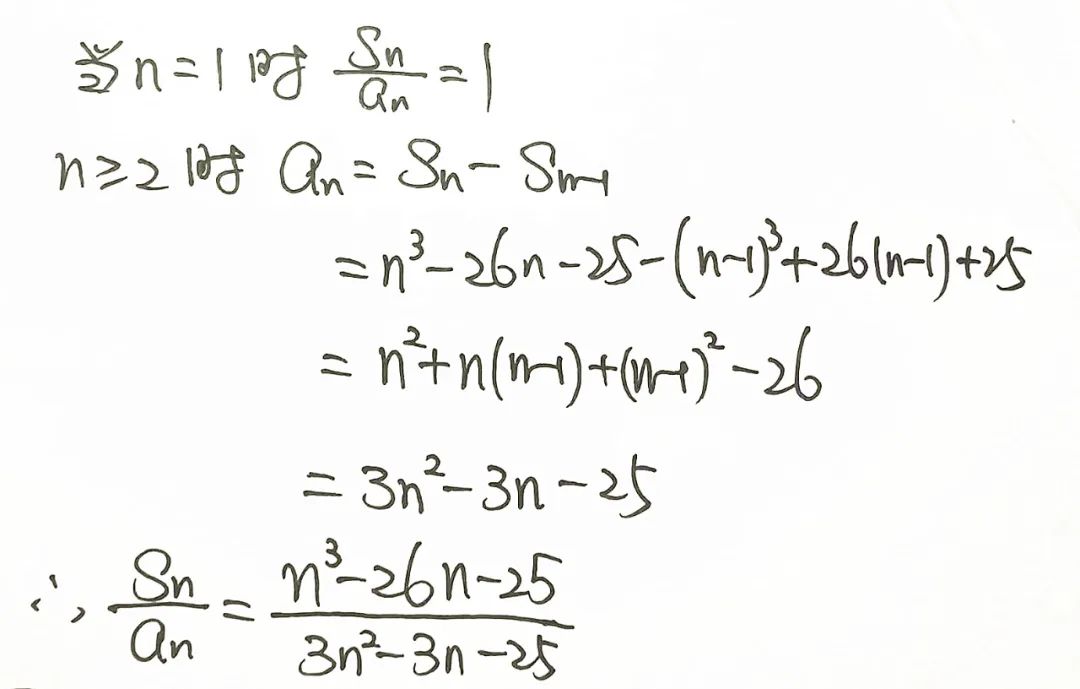 当n=1时 Sn/an=1
n≥2时 an=Sn-Sn-1
=n³-26n-25-(n-1)³+26(n-1)+25
=n²+n(n-1)+(n-1)²-26
=3n²-3n-25
∴ Sn/an=n³-26n-25/3n²-3n-25